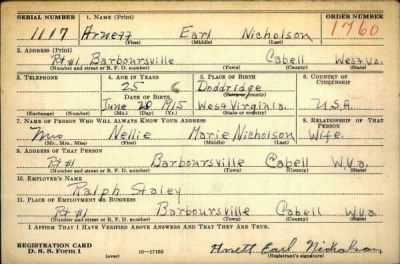 SERIAL NUMBER 1. NAME (Print) ORDER NUMBER
1117 Arnett Earl Nicholson 1760
(First) (Middle) (Last)
2. ADDRESS (Print)
Rt #1 Barboursville Cabell West Va.
(Number and street or R. F. D. number) (Town) (County) (State)
3. TELEPHONE 4. AGE IN YEARS 5. PLACE OF BIRTH 6. COUNTRY OF CITIZENSHIP
25 6 Doddridge
DATE OF BIRTH (Town) (County)
June 20 1915 West Virginia U.S.A.
(Exchange) (Number) (Mo.) (Day) (Yr.) (State or country)
7. NAME OF PERSON WHO WILL ALWAYS KNOW YOUR ADDRESS 8. RELATIONSHIP OF THAT PERSON
Mrs Nellie Marie Nicholson Wife.
(Mr., Mrs., Miss) (First) (Middle) (Last)
9. ADDRESS OF THAT PERSON
Rt #1 Barboursville Cabell W.Va.
(Number and street or R. F. D. number) (Town) (County) (State)
10. EMPLOYER'S NAME
Ralph Staley
11. PLACE OF EMPLOYMENT OR BUSINESS
Rt. #1 Barboursville Cabell W.Va
(Number and street or R. F. D. number) (Town) (County) (State)
I AFFIRM THAT I HAVE VERIFIED ABOVE ANSWERS AND THAT THEY ARE TRUE.
REGISTRATION CARD
D. S. S. Form 1 (over) 16—17105 Arnett Earl Nicholson
(Registrant's signature)